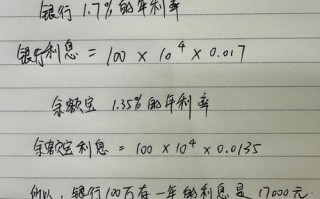 银行 1.7% 的年利率
银行利息 = 100 × 10⁴ × 0.017
余额宝 1.35% 的年利率
余额宝利息 = 100 × 10⁴ × 0.0135
所以,银行100万存一年的利息是 17000元